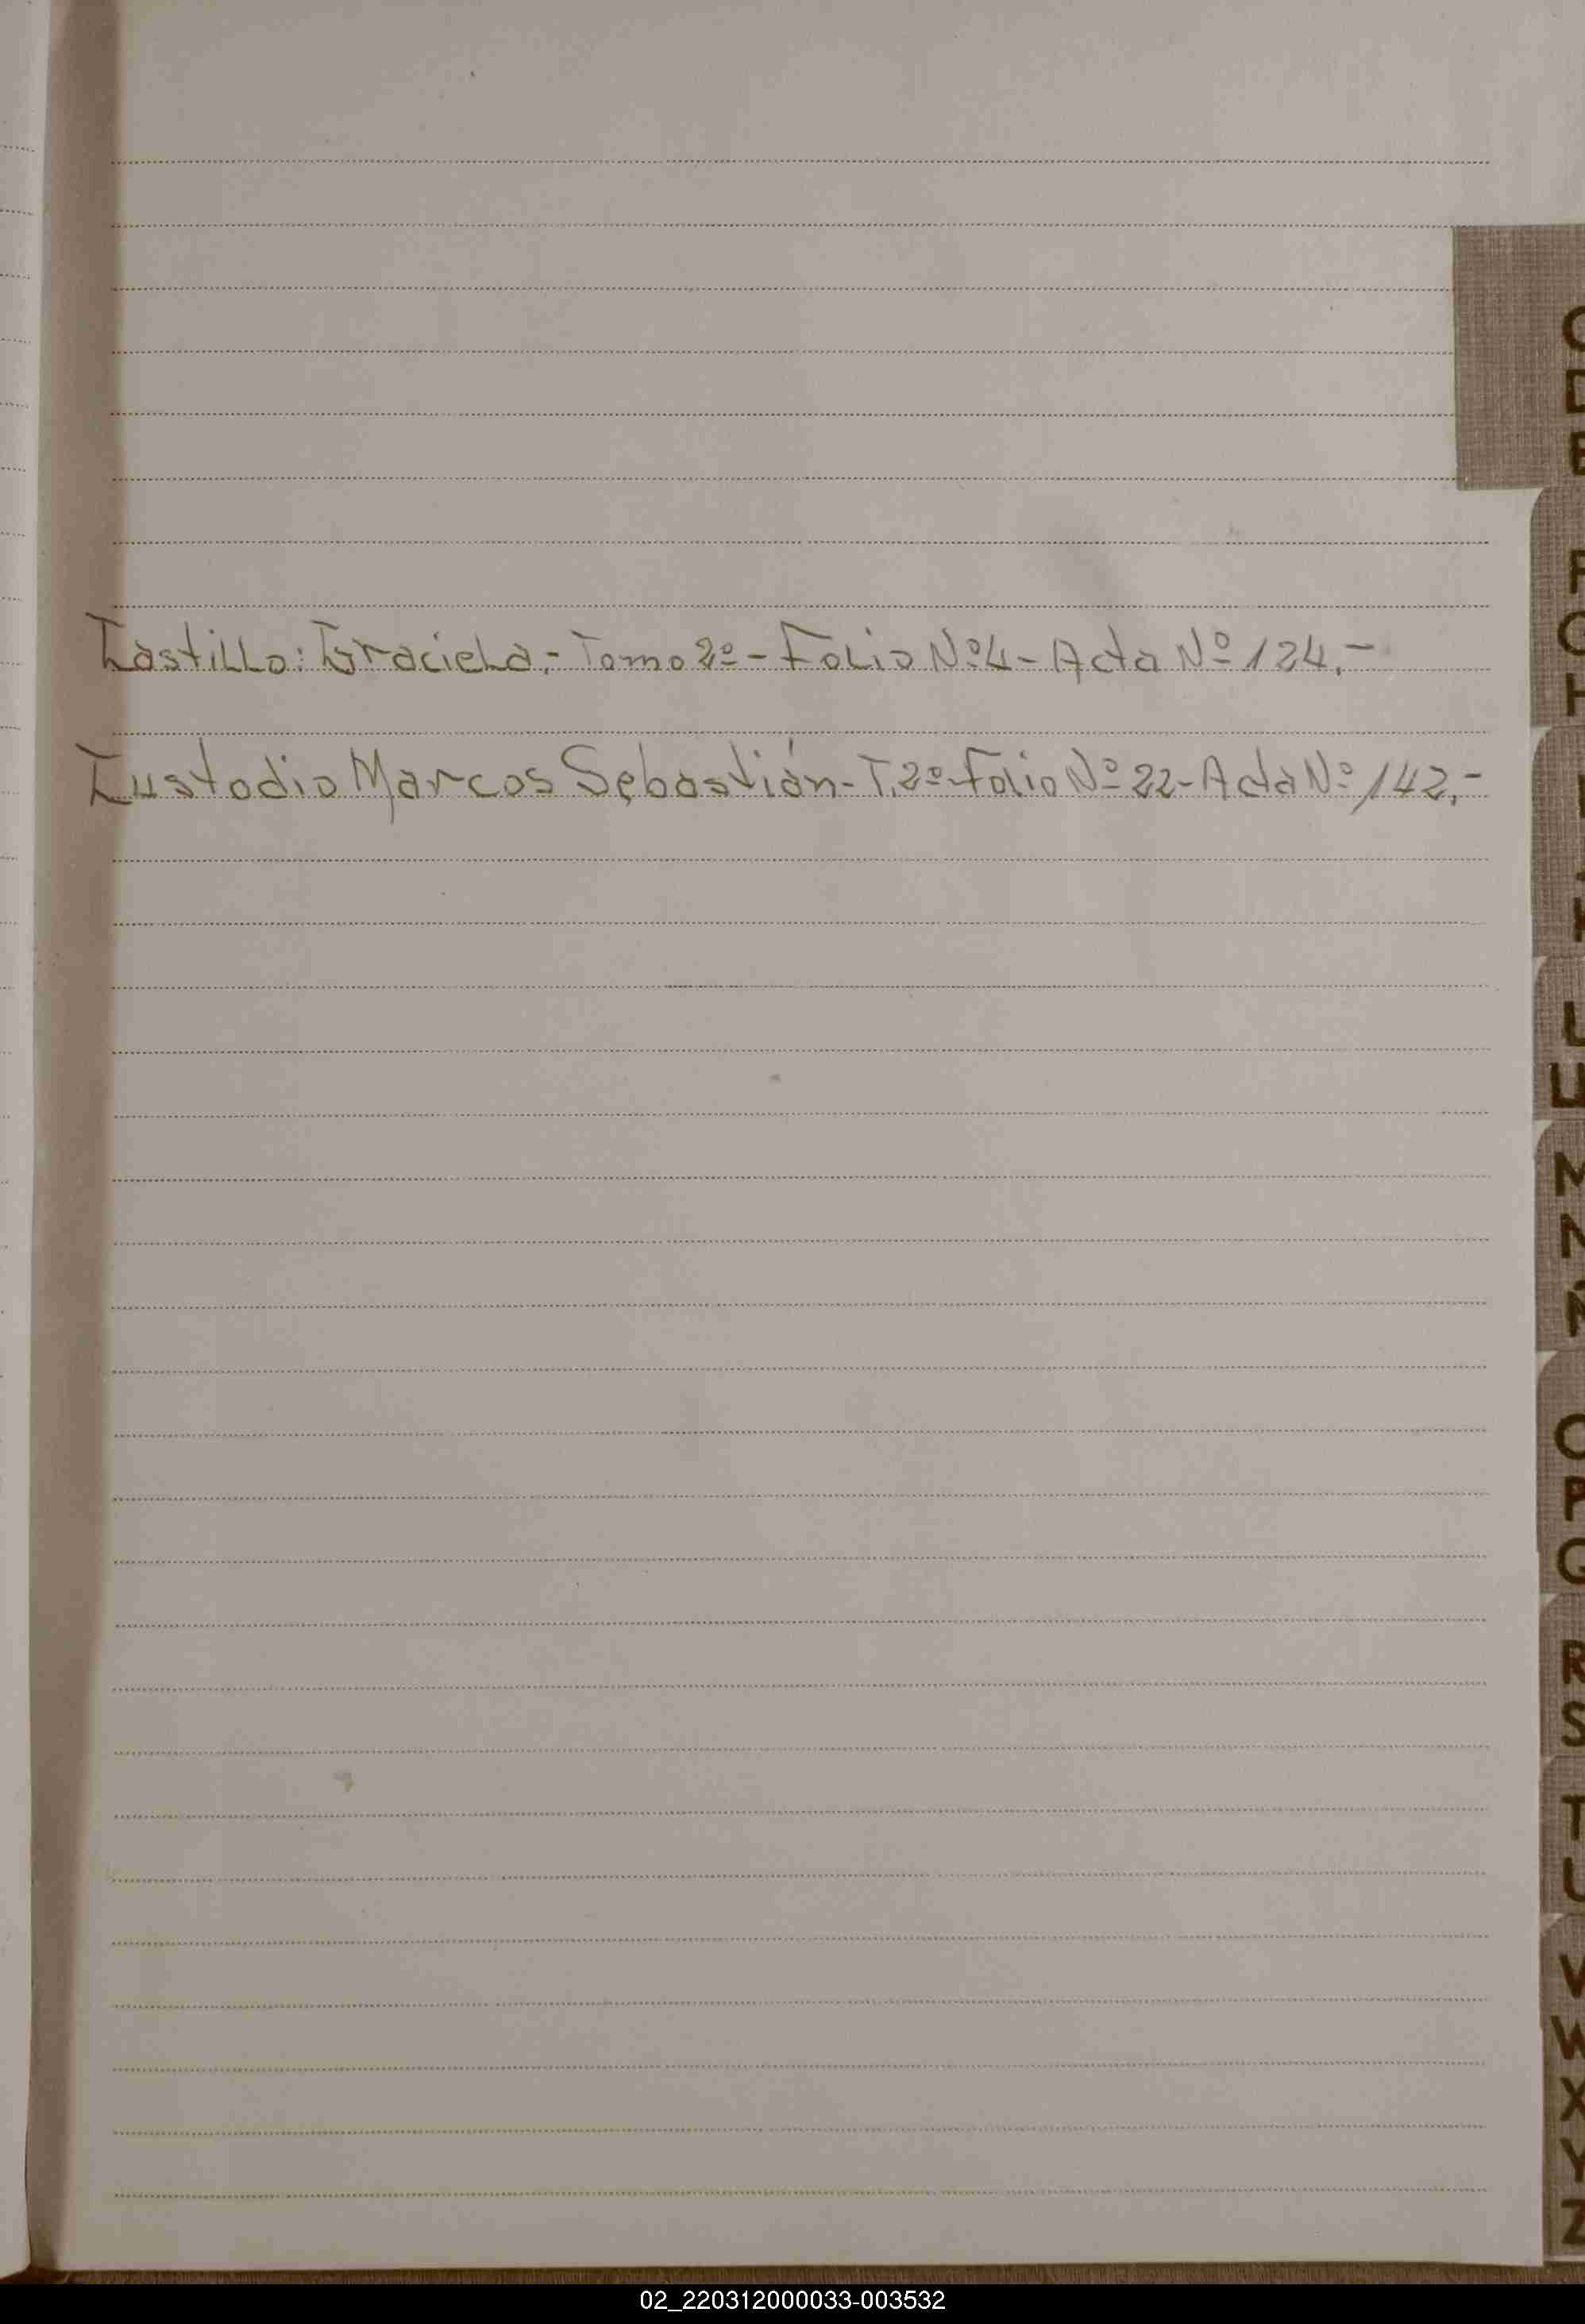 Castillo: Graciela.- Tomo 2º - Folio Nº 4 - Acta Nº 124.-
Custodio Marcos Sebastián - T. 2º - Folio Nº 22 - Acta Nº 142.-
C
D
E
F
G
H
K
L
LL
M
N
Ñ
O
P
Q
R
S
T
U
V
W
X
Y
Z
02_220312000033-003532